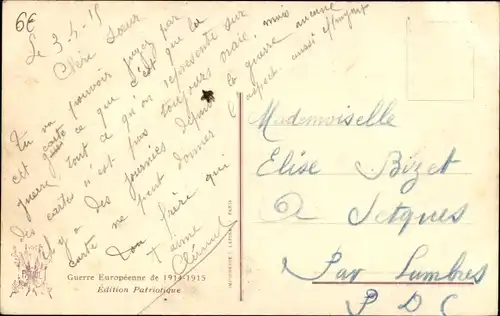 6€
Le 3-4-15
Chère Soeur
Tu va pouvoir juger par
cet carte ce que c'est que la
guerre, tout ce qu'on représente sur
des cartes n'est pas toujours vraie, mais
il y a des journées depuis la guerre aucune
carte ne peut donner l'aspect aussi
Ton frère qui
t'aime
Guerre Européenne de 1914-1915
Édition Patriotique
PARIS
Mademoiselle
Elise Bizet
à Setques
Par Lumbres
P D C